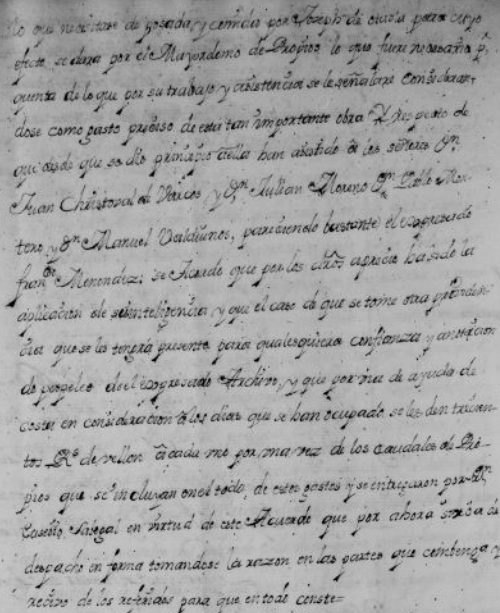 lo que necesitase de posada, y comida por Joseph de para cuyo
efecto se dara por el Mayordomo de Propios lo que fuere necesario p.r
quenta de lo que por su trabajo, y asistencia se le señalare consideran-
dose como gasto preciso de esta tan importante obra Y respecto de
que desde que se dio principio a ella han asistido a los señores D.n
Juan Christoval de y D.n Julian Moreno D.n Pablo Mon-
tero y D.n Manuel pareciendo bastante el expresado
fran.co Menendez; se Acordo que por los dhos aprecio ha sido la
aplicacion de su inteligencia, y que el caso de que se tome otra providen-
cia que se les tengra presente para qualesquiera confianza y anotacion
de papeles del expresado Archivo, y que por via de ayuda de
costa en consideracion a los dias que se han ocupado se les den trescien-
tos R.s de vellon a cada uno por una vez de los caudales de Pro-
pios que se incluyan en el todo de estos gastos y se entregaron por D.n
en virtud de este Acuerdo que por ahora sirba de
despacho en forma tomandose la razon en las partes que combenga y
recivo de los referidos para que en todo conste=